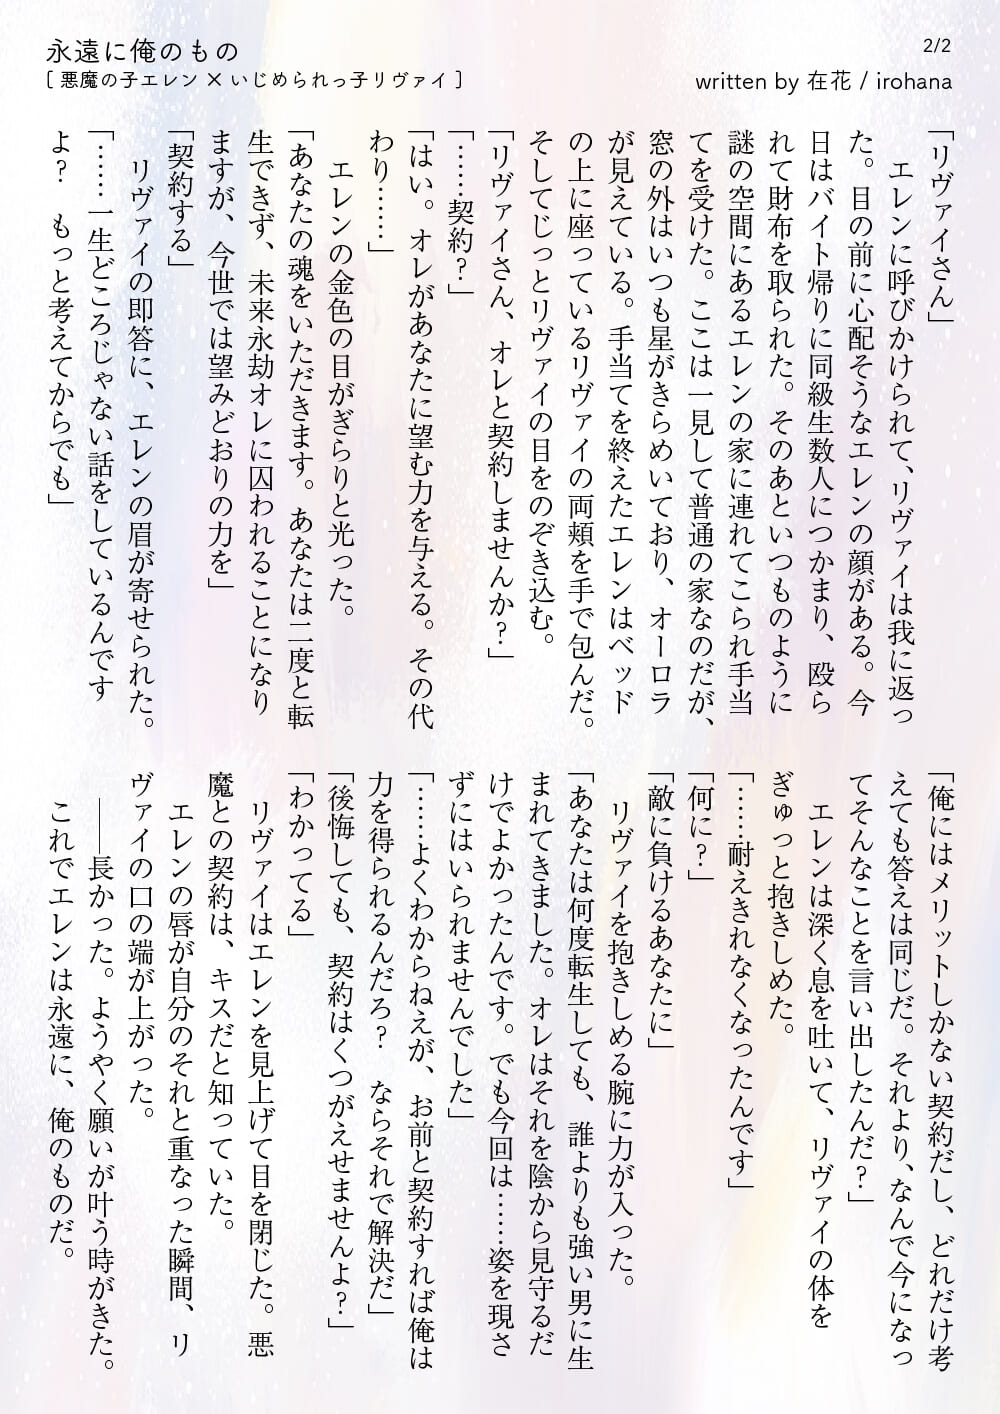 永遠に俺のもの
[ 悪魔の子エレン × いじめられっ子リヴァイ ]
2/2
written by 在花 / irohana
「リヴァイさん」
　エレンに呼びかけられて、リヴァイは我に返っ
た。目の前に心配そうなエレンの顔がある。今
日はバイト帰りに同級生数人につかまり、殴ら
れて財布を取られた。そのあといつものように
謎の空間にあるエレンの家に連れてこられ手当
てを受けた。ここは一見して普通の家なのだが、
窓の外はいつも星がきらめいており、オーロラ
が見えている。手当てを終えたエレンはベッド
の上に座っているリヴァイの両頬を手で包んだ。
そしてじっとリヴァイの目をのぞき込む。
「リヴァイさん、オレと契約しませんか？」
「……契約？」
「はい。オレがあなたに望む力を与える。その代
わり……」
　エレンの金色の目がぎらりと光った。
「あなたの魂をいただきます。あなたは二度と転
生できず、未来永劫オレに囚われることになり
ますが、今世では望みどおりの力を」
「契約する」
　リヴァイの即答に、エレンの眉が寄せられた。
「……一生どころじゃない話をしているんです
よ？　もっと考えてからでも」
「俺にはメリットしかない契約だし、どれだけ考
えても答えは同じだ。それより、なんで今になっ
てそんなことを言い出したんだ？」
　エレンは深く息を吐いて、リヴァイの体を
ぎゅっと抱きしめた。
「……耐えきれなくなったんです」
「何に？」
「敵に負けるあなたに」
　リヴァイを抱きしめる腕に力が入った。
「あなたは何度転生しても、誰よりも強い男に生
まれてきました。オレはそれを陰から見守るだ
けでよかったんです。でも今回は……姿を現さ
ずにはいられませんでした」
「……よくわからねえが、お前と契約すれば俺は
力を得られるんだろ？　ならそれで解決だ」
「後悔しても、契約はくつがえせませんよ？」
「わかってる」
　リヴァイはエレンを見上げて目を閉じた。悪
魔との契約は、キスだと知っていた。
　エレンの唇が自分のそれと重なった瞬間、リ
ヴァイの口の端が上がった。
　――長かった。ようやく願いが叶う時がきた。
　これでエレンは永遠に、俺のものだ。